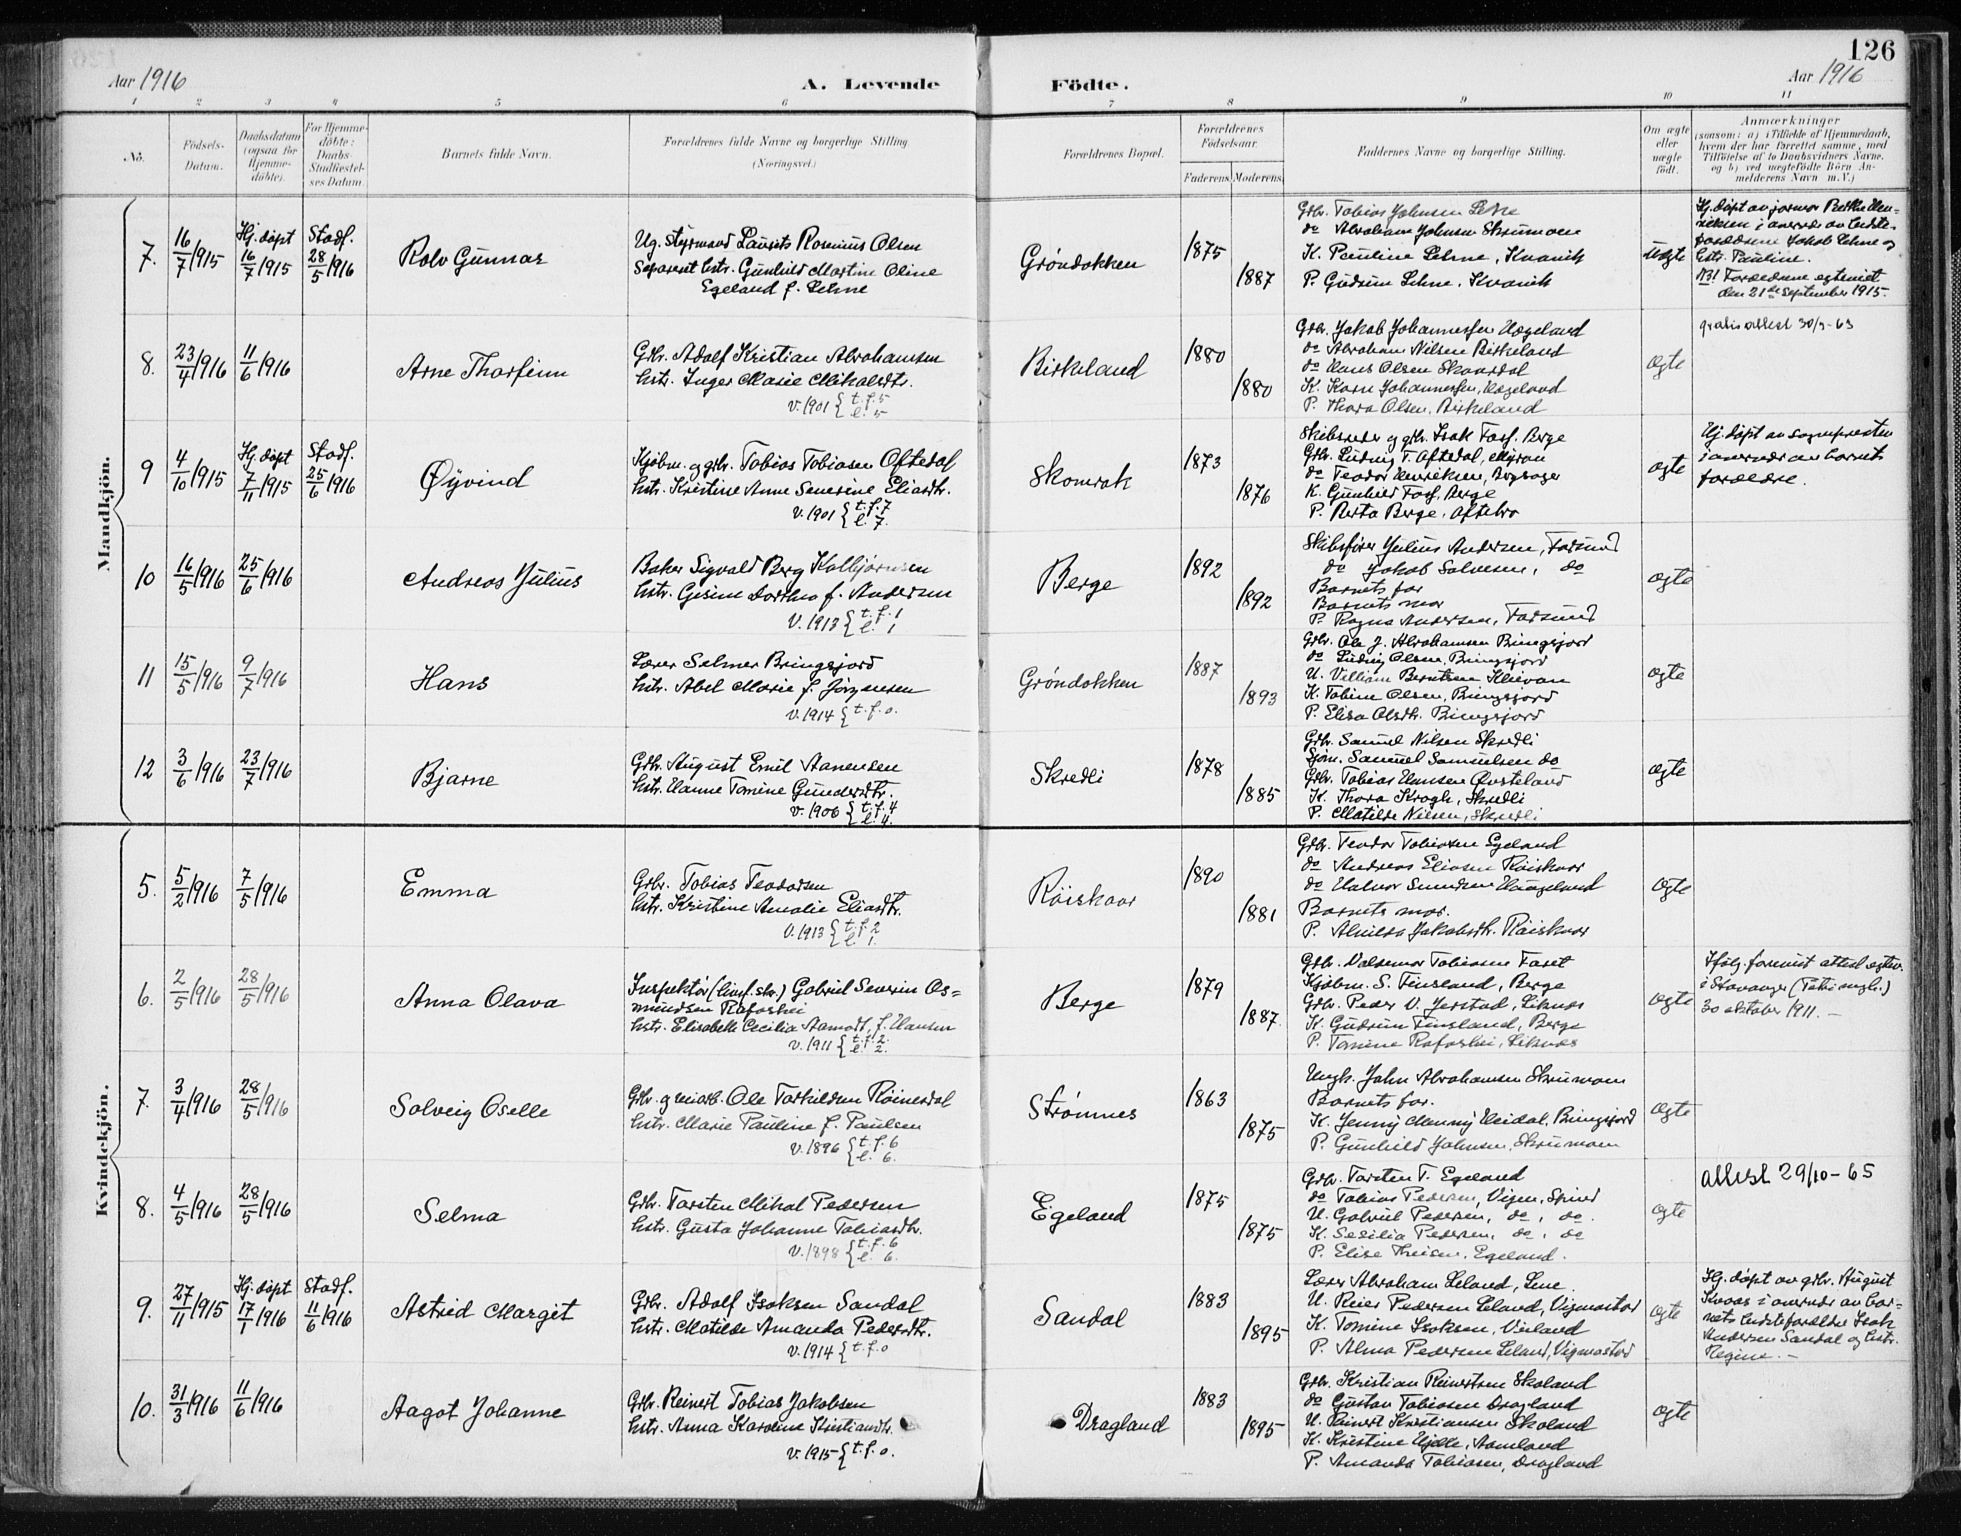 126
Aar 1916
A. Levende
Födte.
Aar 1916
1 2 3 4 5 6 7 8 9 10 11
No.
Födsels-Datum.
Daabsdatum (ogsaa for Hjemme-döbte).
For Hjemme-döbte: Daabs-Stadfæstel-ses Datum.
Barnets fulde Navn.
Forældrenes fulde Navne og borgerlige Stilling (Næringsvei.)
Forældrenes Bopæl.
Forældrenes Födselsaar.
Faderens
Moderens
Faddernes Navne og borgerlige Stilling.
Om ægte eller uægte födt.
Anmærkninger
(saasom: a) i Tilfælde af Hjemmedaab, hvem der har forrettet samme, med Tilföielse af to Daabsvidners Navne. og b) ved uægtefödte Börn An-melderens Navn m. V.)
Mandkjön.
7. 16/7 1915
Hj. døpt 16/7 1915
Stadf. 28/5 1916
Rolv Gunnar
Ug. styrmand Laurits Rosenius Olsen
Separert hstr. Gunhild Martine Oline
Egeland f. Lehne
Grøndokken
1875
1887
Grbr. Tobias Johnsen Lehne
do Abraham Johnsen Skrumoen
K. Pauline Lehne, Kvavik
P. Gudrun Lehne, Kvavik
Uægte
Hj. døpt av jormor Berthe Hen-
riksen i nærvær av bedste-
forældrene Jakob Lehne og
hstr. Pauline.
NB! Forældrene egteviet
den 21de September 1915.
8. 23/4 1916
11/6 1916
Arne Thorfinn
Grbr. Adolf Kristian Abrahamsen
hstr. Inger Marie Mikalsdtr.
v. 1901 { t. f. 5
l. 5
Birkeland
1880
1880
Grbr. Jakob Johannessen Hægeland
do Abraham Nilsen Birkeland
do Hans Olsen Skaardal
K. Karn Johannessen, Hægeland
P. Thora Olsen, Birkeland
Ægte
gratis attest 30/9-63
9 4/10 1915
Hj. døpt 7/11 1915
Stadf. 25/6 1916
Øyvind
Kjøbm. og grbr. Tobias Tobiasen Oftedal
hstr. Kristine Anne Severine Eliasdtr.
v. 1901 { t. f. 7
l. 7.
Skomrak
1873
1876
Skibsreder og grbr. Isak Fosf. Berge
Grbr. Ludvig T. Aftedal, Myran
do Teodor Henriksen,
K. Gunhild Fosf. Berge
P. Berta Berge, Aftebro
Ægte
Hj. døpt av sognepresten
i nærvær av barnets
forældre.
10 16/5 1916
25/6 1916
Andreas Julius
Baker Sigvald Berg Kolbjørnsen
hstr. Gesine Dorthea f. Andersen
v. 1913 { t. f. 1
l. 1
Berge
1892
1892
Skibsfører Julius Andersen, Farsund
do Jakob Salvesen, do
Barnets far
Barnets mor
P. Ragna Andersen, Farsund
Ægte
11 15/5 1916
9/7 1916
Hans
Lærer Selmer Bringsjord
hstr. Abel Marie f. Jørgensen
v. 1914 { t. f. 0.
Grøndokken
1887
1893
Grbr. Ole J. Abrahamsen Bringsjord
do Ludvig Olsen, Bringsjord
U. Villiam Berntsen Klievan
K. Tobine Olsen, Bringsjord
P. Elisa Olsdtr. Bringsjord
Ægte
12 3/6 1916
23/7 1916
Bjarne
Grbr. August Emil Aanensen
hstr. Hanne Tomine Gundersdtr.
v. 1906 { t. f. 4
l. 4.
Skredli
1878
1885
Grbr. Samuel Nilsen Skredli
Sjøm. Samuel Samuelsen do
Grbr. Tobias Hansen Øvsteland
K. Thora Krogh, Skredli
P. Matilde Nilsen, Skredli
Ægte
Kvindekjön.
5. 5/2 1916
7/5 1916
Emma
Grbr. Tobias Teodorsen
hstr. Kristine Amalie Eliasdtr.
v. 1913 { t. f. 2
l. 1.
Røiskaar
1890
1881
Grbr. Teodor Tobiasen Egeland
do Andreas Eliasen Røiskaar
do Halvor
Barnets mor.
P. Alvilda Jakobsdtr. Røiskaar
Ægte
6. 2/5 1916
28/5 1916
Anna Olava
Inspektør (linf. sk.) Gabriel Severin Os-
mundsen Rafoshei
hstr. Elisabeth Cecilia Aamodt, f. Hansen
v. 1911 { t. f. 2.
l. 2.
Berge
1879
1887
Grbr. Valdemar Tobiasen Faret
Kjøbm. S. Finsland, Berge
Grbr. Peder V. Jerstad, Liknes
K. Gudrun Finsland, Berge
P. Tomine Rafoshei, Liknes
Ægte
Ifølg. forevist attest egtev.
i Stavanger (Petri mgh.)
30 oktober 1911. -
7. 3/4 1916
28/5 1916
Solveig Oselle
Grbr. og Ole Tarkildsen Røinesdal
hstr. Marie Pauline f. Paulsen
v. 1896 { t. f. 6
l. 6.
Strømnes
1863
1875
Ungk. John Abrahamsen Skrumoen
Barnets far.
K. Jenny Heidal, Bringsjord
P. Gunhild Johnsen, Skrumoen
Ægte
8. 4/5 1916
28/5 1916
Selma
Grbr. Tarsten Mikal Pedersen
hstr. Gusta Johanne Tobiasdtr.
v. 1898 { t. f. 6
l. 6.
Egeland
1875
1875
Grbr. Torsten T. Egeland
do Tobias Pedersen, Vigen, Spind
U. Gabriel Pedersen, do, do.
K. Sesilia Pedersen, do, do
P. Elise Theisen, Egeland.
Ægte
attest 29/10-65
9. 27/11 1915
Hj. døpt 17/1 1916
Stadf. 11/6 1916
Astrid Margit
Grbr. Adolf Isaksen Sandal
hstr. Matilde Amanda Pedersdtr.
v. 1914 { t. f. 0
Sandal
1883
1895
Lærer Abraham Leland, Lene
U. Reier Pedersen Leland, Vigmostad
K. Tomine Isaksen, Veiland
P. Alma Pedersen Leland, Vigmostad
Ægte
Hj. døpt av grbr. August
Kvaas i nærvær av bar-
nets bedsteforældre Isak
Andersen Sandal og hstr.
Regine. -
10. 31/3 1916
11/6 1916
Aagot Johanne
Grbr. Reinert Tobias Jakobsen
hstr. Anna Karoline Kristiansdtr.
v. 1915 { t. f. 0.
Dragland
1883
1895
Grbr. Kristian Reinertsen Skoland
do Gustav Tobiasen Dragland
U. Reinert Kristiansen Skoland
K. Kristine Hjelle, Aamland
P. Amanda Tobiasen, Dragland
Ægte